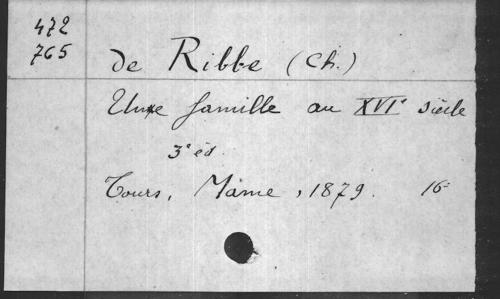 472
765
de Ribbe (Ch.)
Une famille au XVIe siècle
3e éd.
Tours, Mame, 1879. 16°